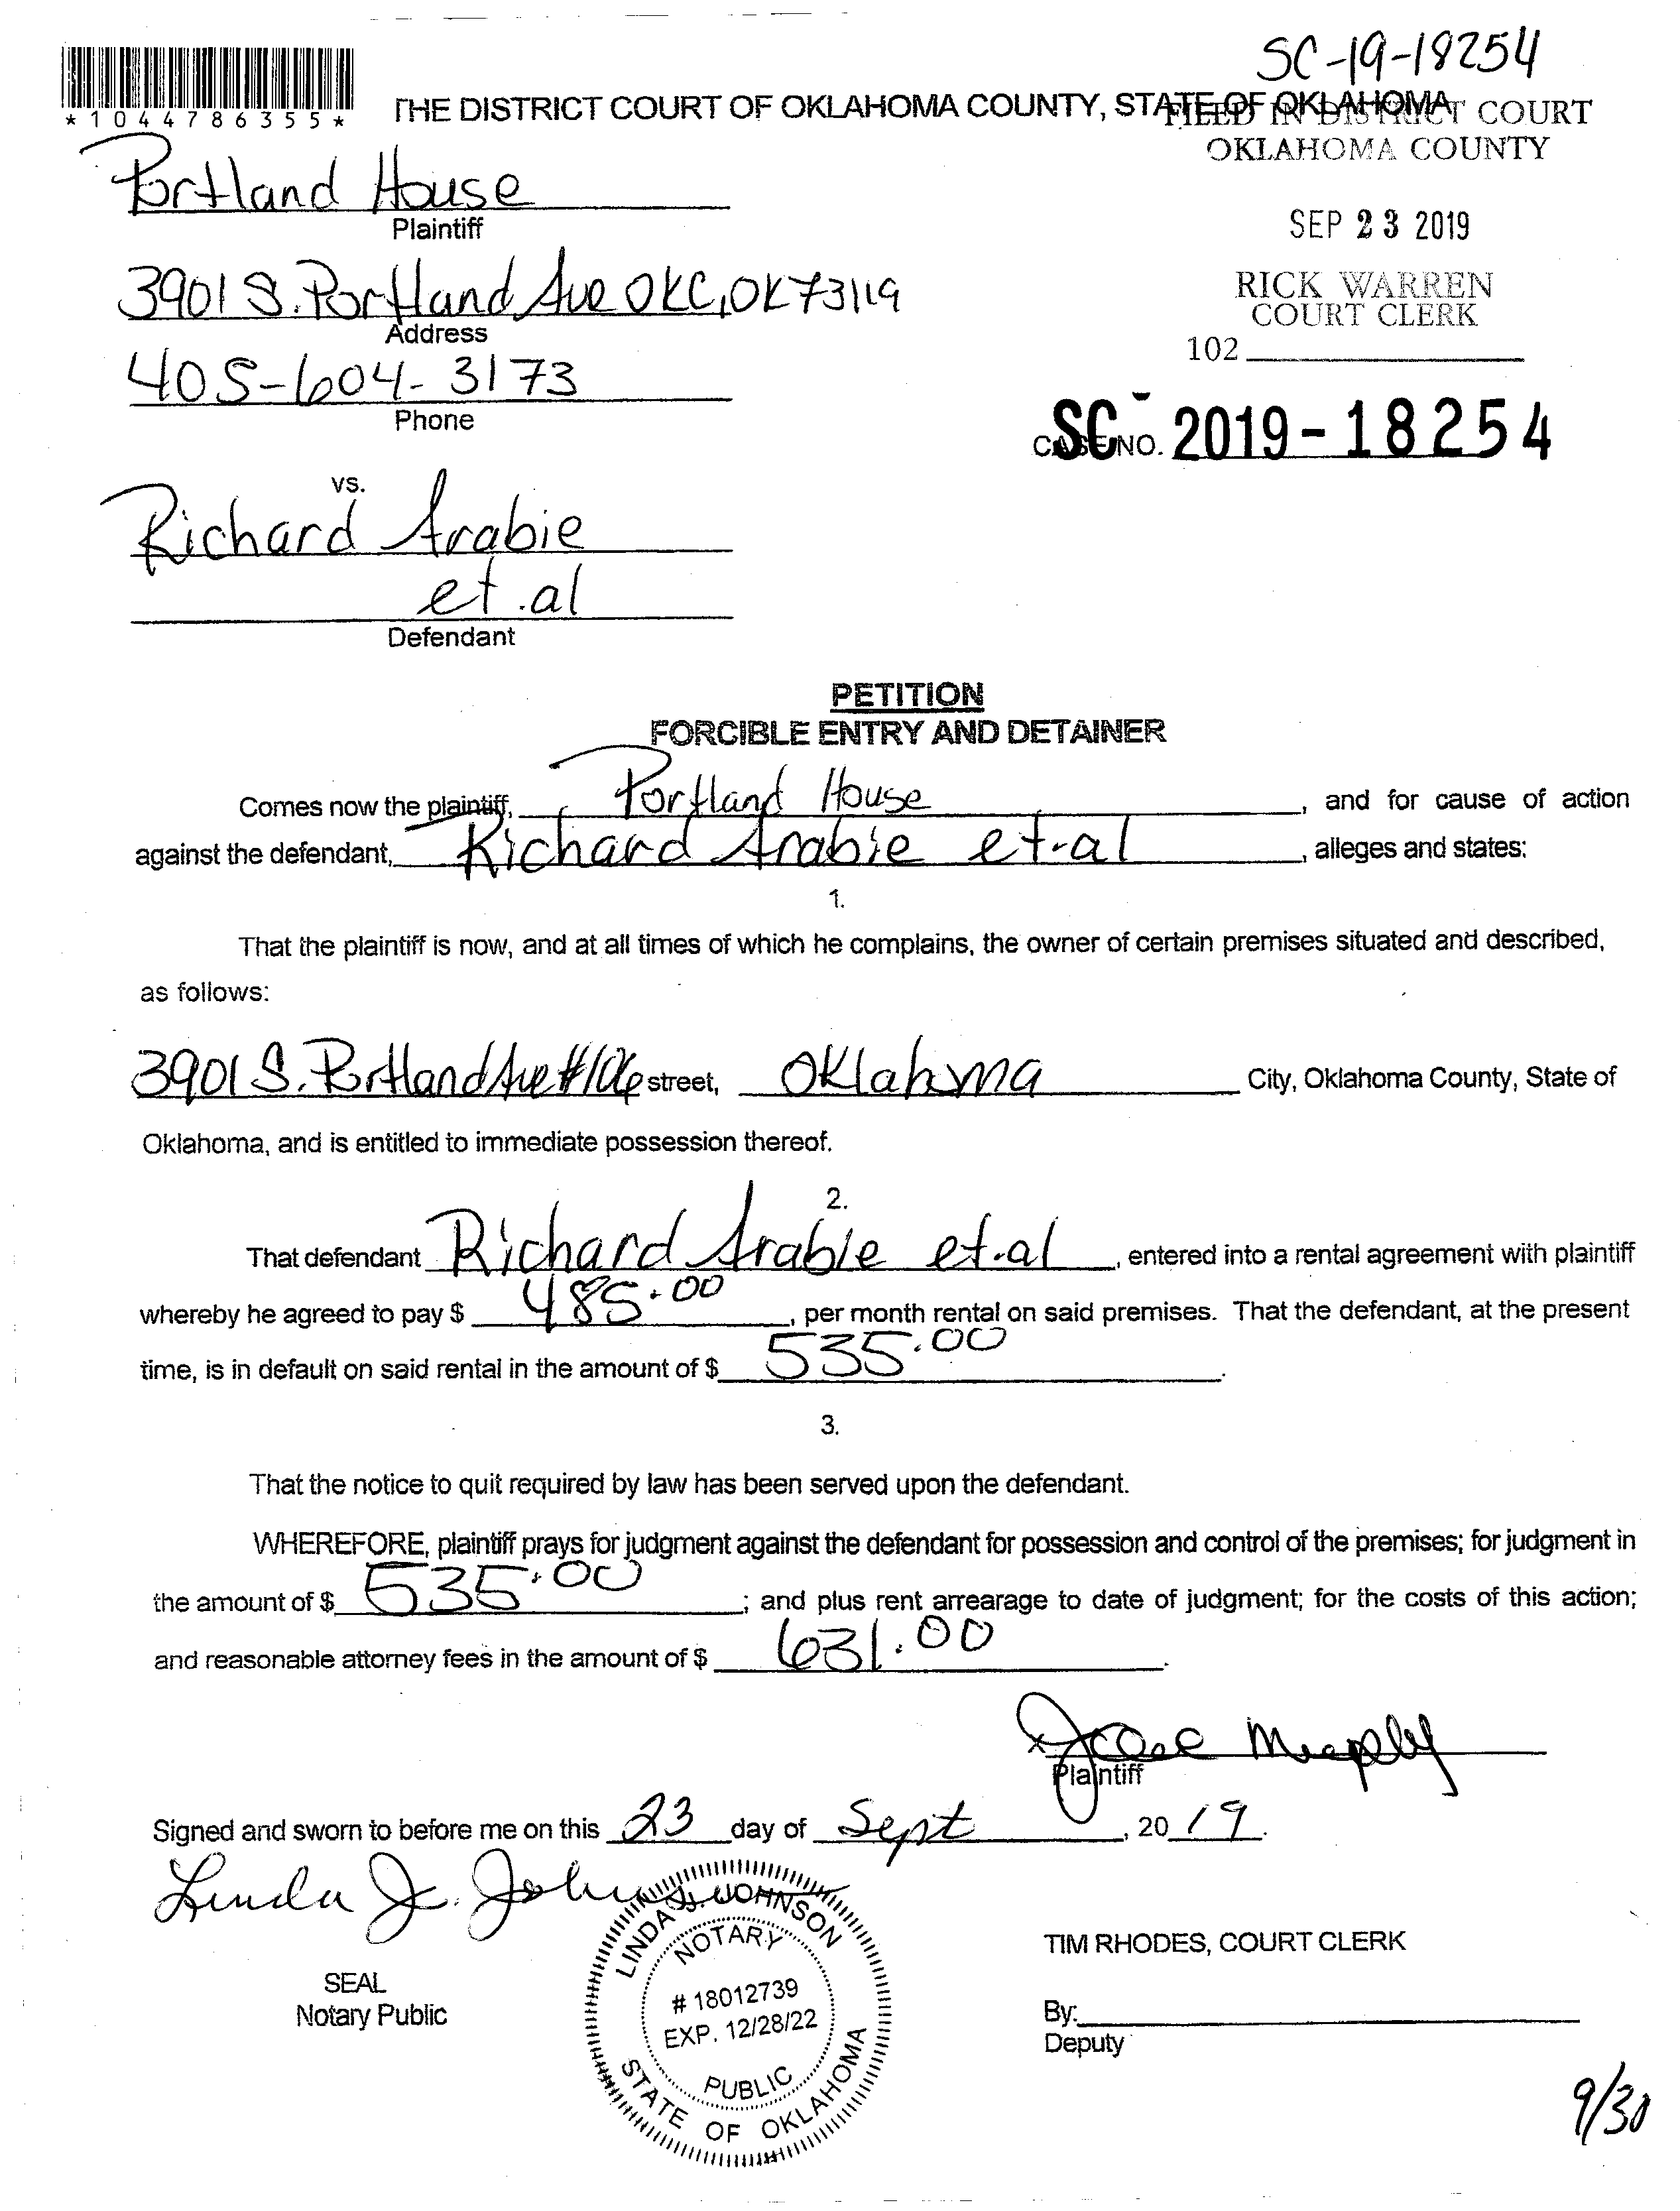 SC-19-18254
*1044786355*
THE DISTRICT COURT OF OKLAHOMA COUNTY, STATE OF OKLAHOMA
FILED IN DISTRICT COURT
OKLAHOMA COUNTY
Portland House
Plaintiff
SEP 23 2019
3901 S. Portland Ave OKC, OK 73119
Address
RICK WARREN
COURT CLERK
405-604-3173
Phone
102
CASE NO. SC-2019-18254
vs.
Richard Arabie
et.al
Defendant
PETITION
FORCIBLE ENTRY AND DETAINER
Comes now the plaintiff, Portland House, and for cause of action
against the defendant, Richard Arabie et.al, alleges and states:
1.
That the plaintiff is now, and at all times of which he complains, the owner of certain premises situated and described,
as follows:
3901 S. Portland Ave #106 street, Oklahoma City, Oklahoma County, State of
Oklahoma, and is entitled to immediate possession thereof.
2.
That defendant Richard Arabie et.al, entered into a rental agreement with plaintiff
whereby he agreed to pay $ 485.00, per month rental on said premises. That the defendant, at the present
time, is in default on said rental in the amount of $ 535.00.
3.
That the notice to quit required by law has been served upon the defendant.
WHEREFORE, plaintiff prays for judgment against the defendant for possession and control of the premises; for judgment in
the amount of $ 535.00; and plus rent arrearage to date of judgment; for the costs of this action;
and reasonable attorney fees in the amount of $ 631.00.
x Murphy
Plaintiff
Signed and sworn to before me on this 23 day of Sept, 20 19.
Linda J. Johnson
LINDA J. JOHNSON
NOTARY
# 18012739
EXP. 12/28/22
PUBLIC
STATE OF OKLAHOMA
SEAL
Notary Public
TIM RHODES, COURT CLERK
By:
Deputy
9/30